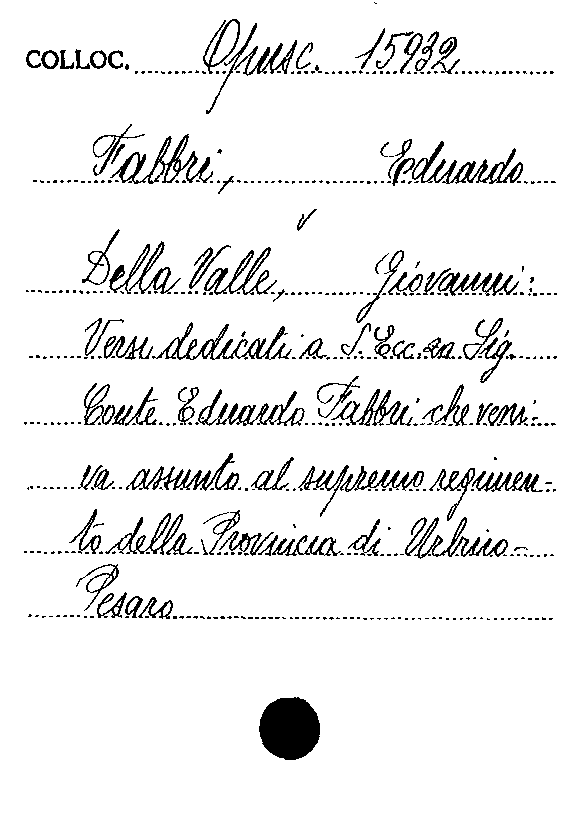 COLLOC. Opusc. 15932
Fabbri, Eduardo
v
Della Valle, Giovanni:
Versi dedicati a S. Ecc.za Sig.
Conte Eduardo Fabbri che veni-
va assunto al supremo regimen-
to della Provincia di Urbino-
Pesaro